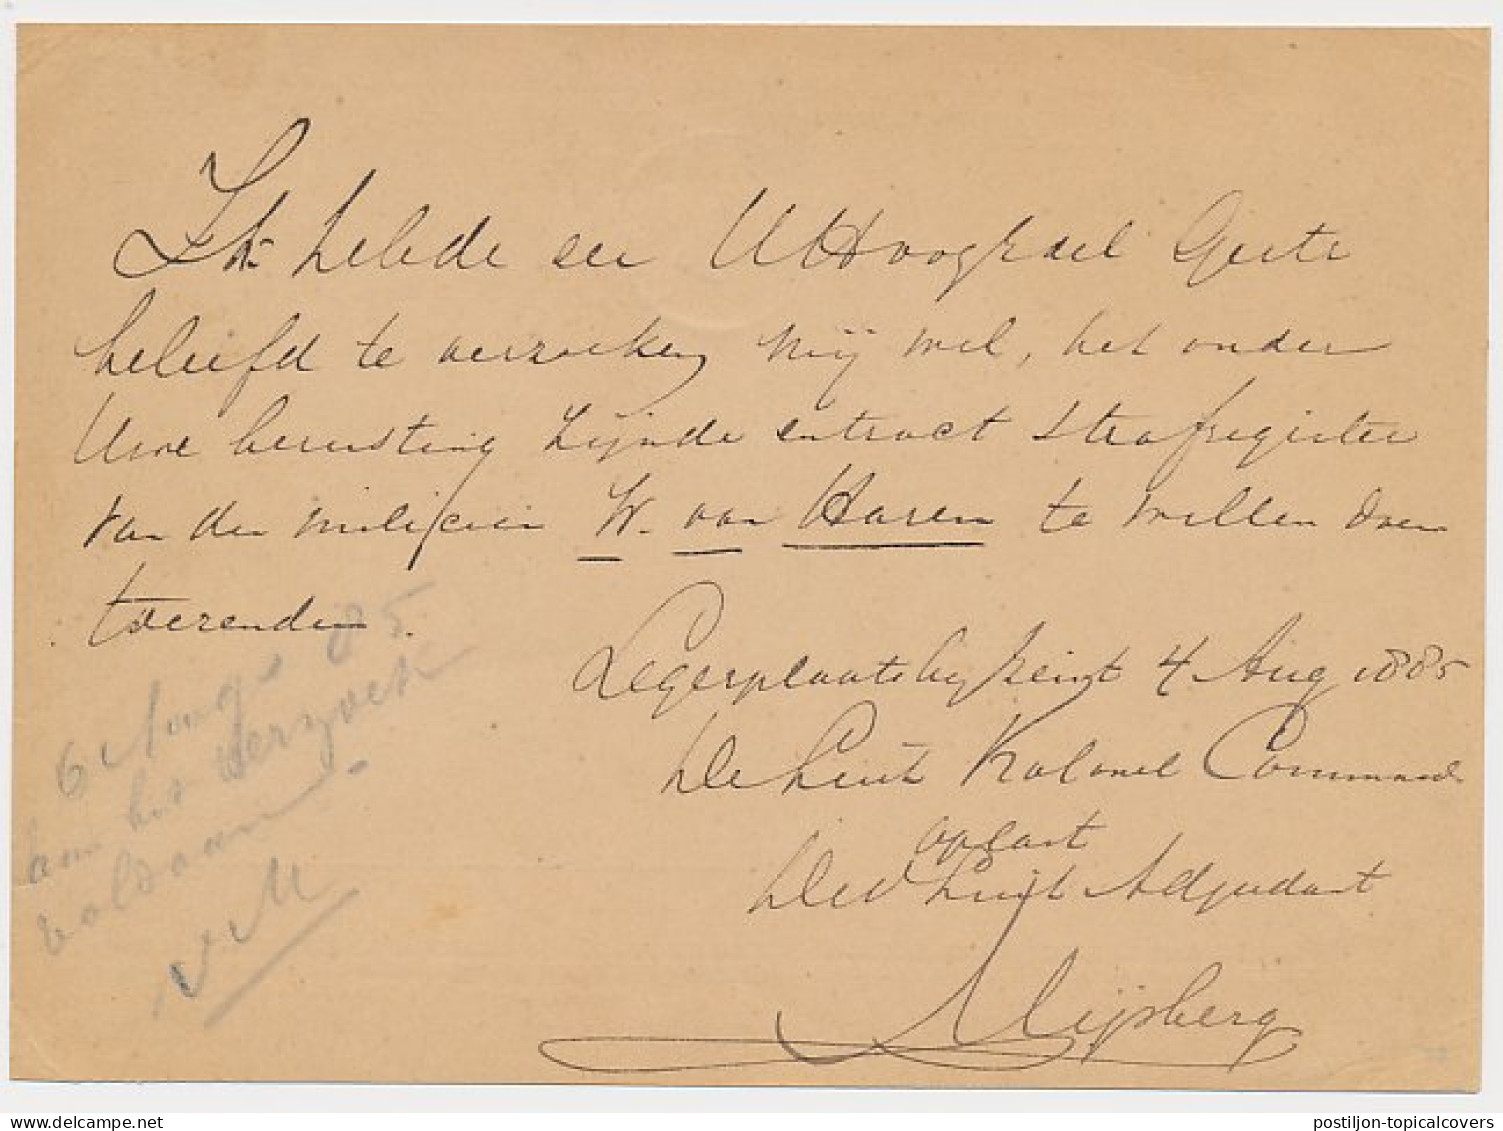 Ik hebbe de eer UHoogEdel Gestr
beleefd te verzoeken mij wel, het onder
Uwe berusting zijnde extract strafregister
van den milicien W. van Haren te willen doen
toezenden.
Legerplaats bij Zeist 4 Aug 1885
De Luit Kolonel Command
op last
De Luit Adjudant
6 Aug 85
aan het verzoek
voldaan
v M
postiljon-topicalcovers
delcampe.net